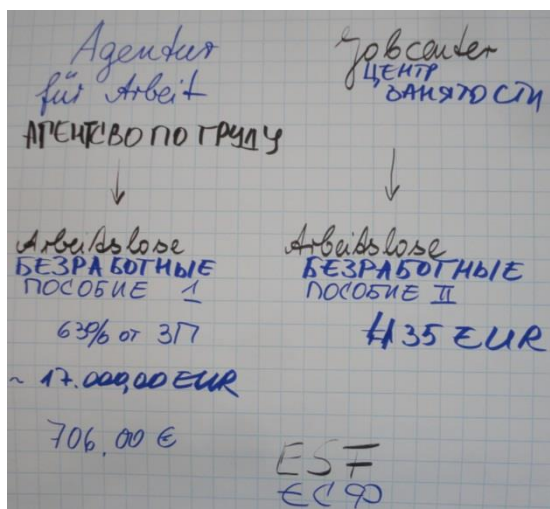 Agentur
für Arbeit
АГЕНТСВО ПО ТРУДУ
Arbeitslose
БЕЗРАБОТНЫЕ
ПОСОБИЕ 1
63% от ЗП
~ 17.000,00 EUR
706,00 €
Jobcenter
ЦЕНТР
ЗАНЯТОСТИ
Arbeitslose
БЕЗРАБОТНЫЕ
ПОСОБИЕ II
435 EUR
ESF
ЕСФ